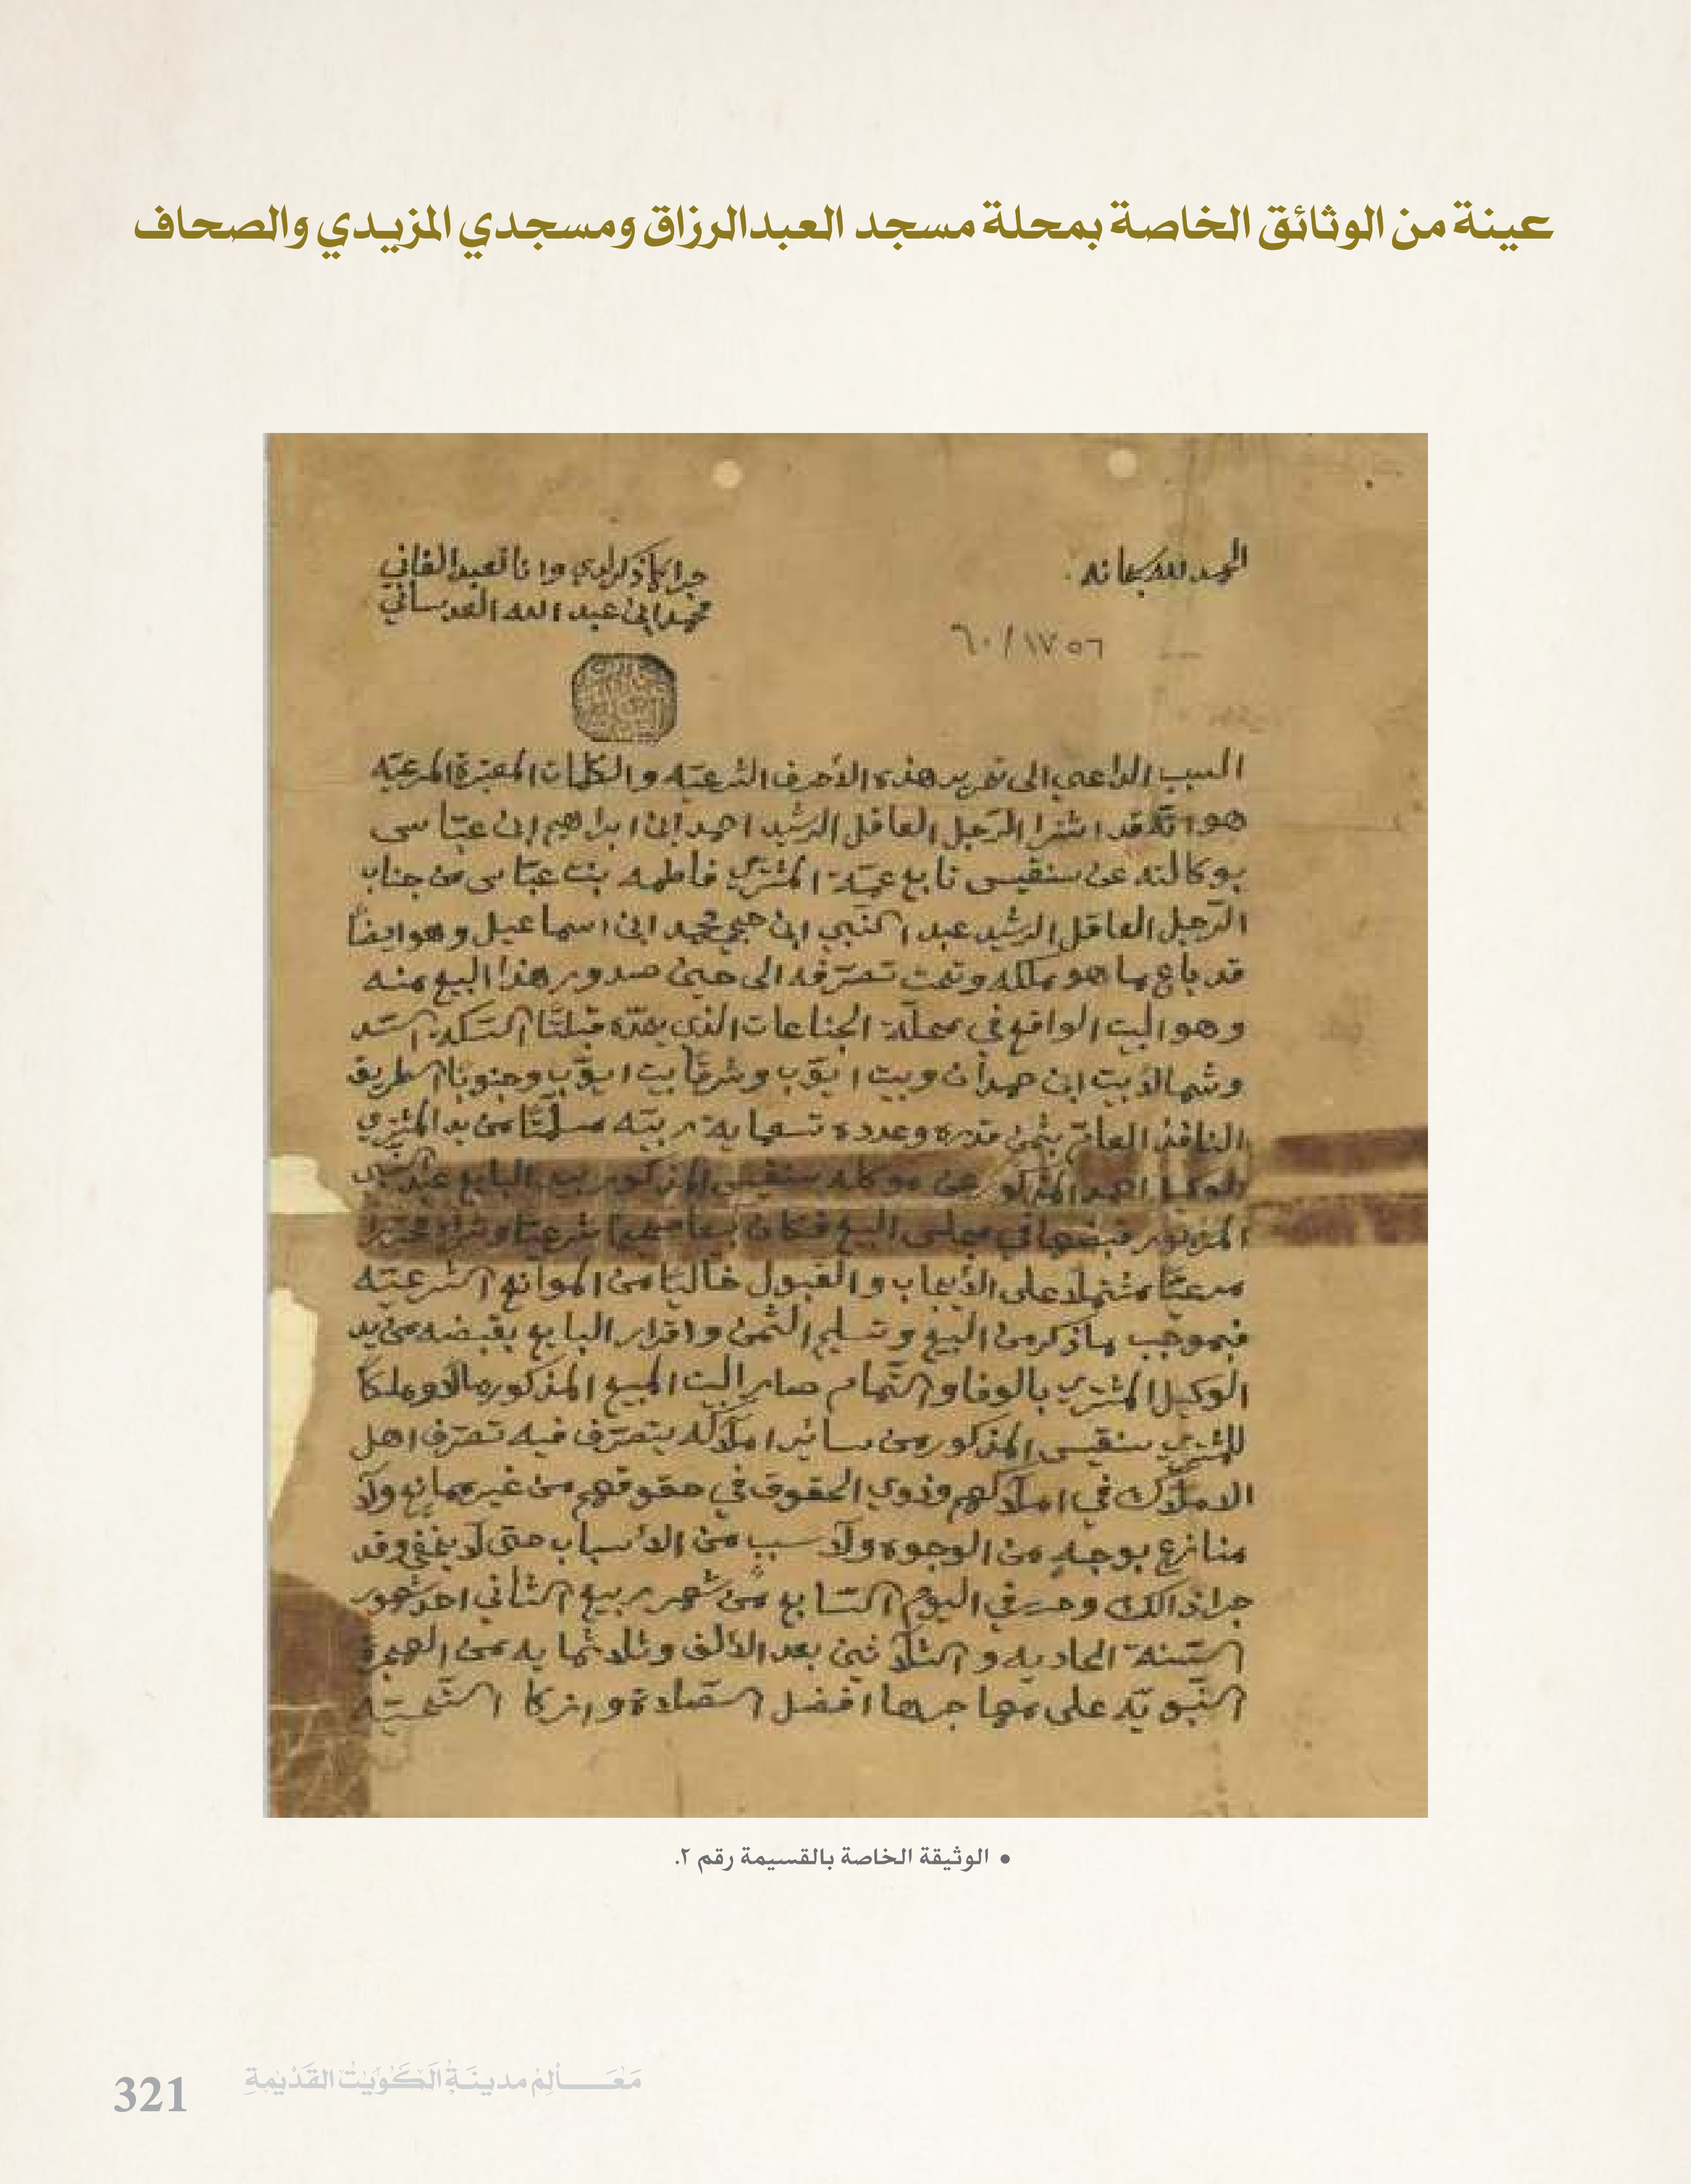 عينة من الوثائق الخاصة بمحلة مسجد العبدالرزاق ومسجدي المزيدي والصحاف
الحمد لله سبحانه
جرا ما ذكر لدي وانا العبد الفاني
محمد ابن عبد الله العدساني
٦٠/١٧٥٦
السبب الداعي الى تحرير هذه الأحرف الشرعيّه والكلمات المعتبرة المرعيّه
هو انّه قد اشترا الرّجل العاقل الرشيد احمد ابن ابراهيم ابن عبّاسي
بوكالته عن سنقيسى تابع عمّة المشتري فاطمه بنت عبّاسى من جناب
الرّجل العاقل الرشيد عبد النّبي ابن حجي محمد ابن اسماعيل وهو ايضاً
قد باع ما هو ملكه وتحت تصرّفه الى حين صدور هذا البيع منه
وهو البيت الواقع في محلّة الجناعات الذي يحدّه قبلتًا السّكة السّد
وشمالاً بيت ابن حمدان وبيت ايّوب وشرقًا بيت ايّوب وجنوبًا الطريق
النافذ العامّ بثمن قدره وعدده تسعماية ربيّه مسلّمتًا من يد المشتري
الوكيل احمد المذكور عن موكله سنقيسى المذكور بيد البايع عبد النّبى
المزبور قبضها في مجلس البيع فكان بيعا صحيحا شرعيّا وشراء محرّرا
مرعيّاً مشتملا على الأيجاب والقبول خاليًا من الموانع الشرعيّه
فبموجب ما ذكر من البيع وتسليم الثّمن واقرار البايع بقبضه من يد
الوكيل المشتري بالوفا والتّمام صار البيت المبيع المذكور مالاً وملكاً
للمشتري سنقيسى المذكور من سائر املاكه يتصرّف فيه تصرّف اهل
الاملاك في املاكهم وذوي الحقوق في حقوقهم من غير ممانع ولا
منازع بوجهٍ من الوجوه ولا سبب من الاسباب حتى لا يخفى وقد
جرا ذالك وحرر في اليوم السّابع من شهر ربيع الثاني احد شهور
السّنة الحاديه والثلاثين بعد الألف وثلاثمايه من الهجرة
النّبويّه على مهاجرها افضل الصّلاة وازكا التّحيّه
• الوثيقة الخاصة بالقسيمة رقم ٢.
مَعَالِم مدينَة الكُوَيت القَدِيمةِ
321